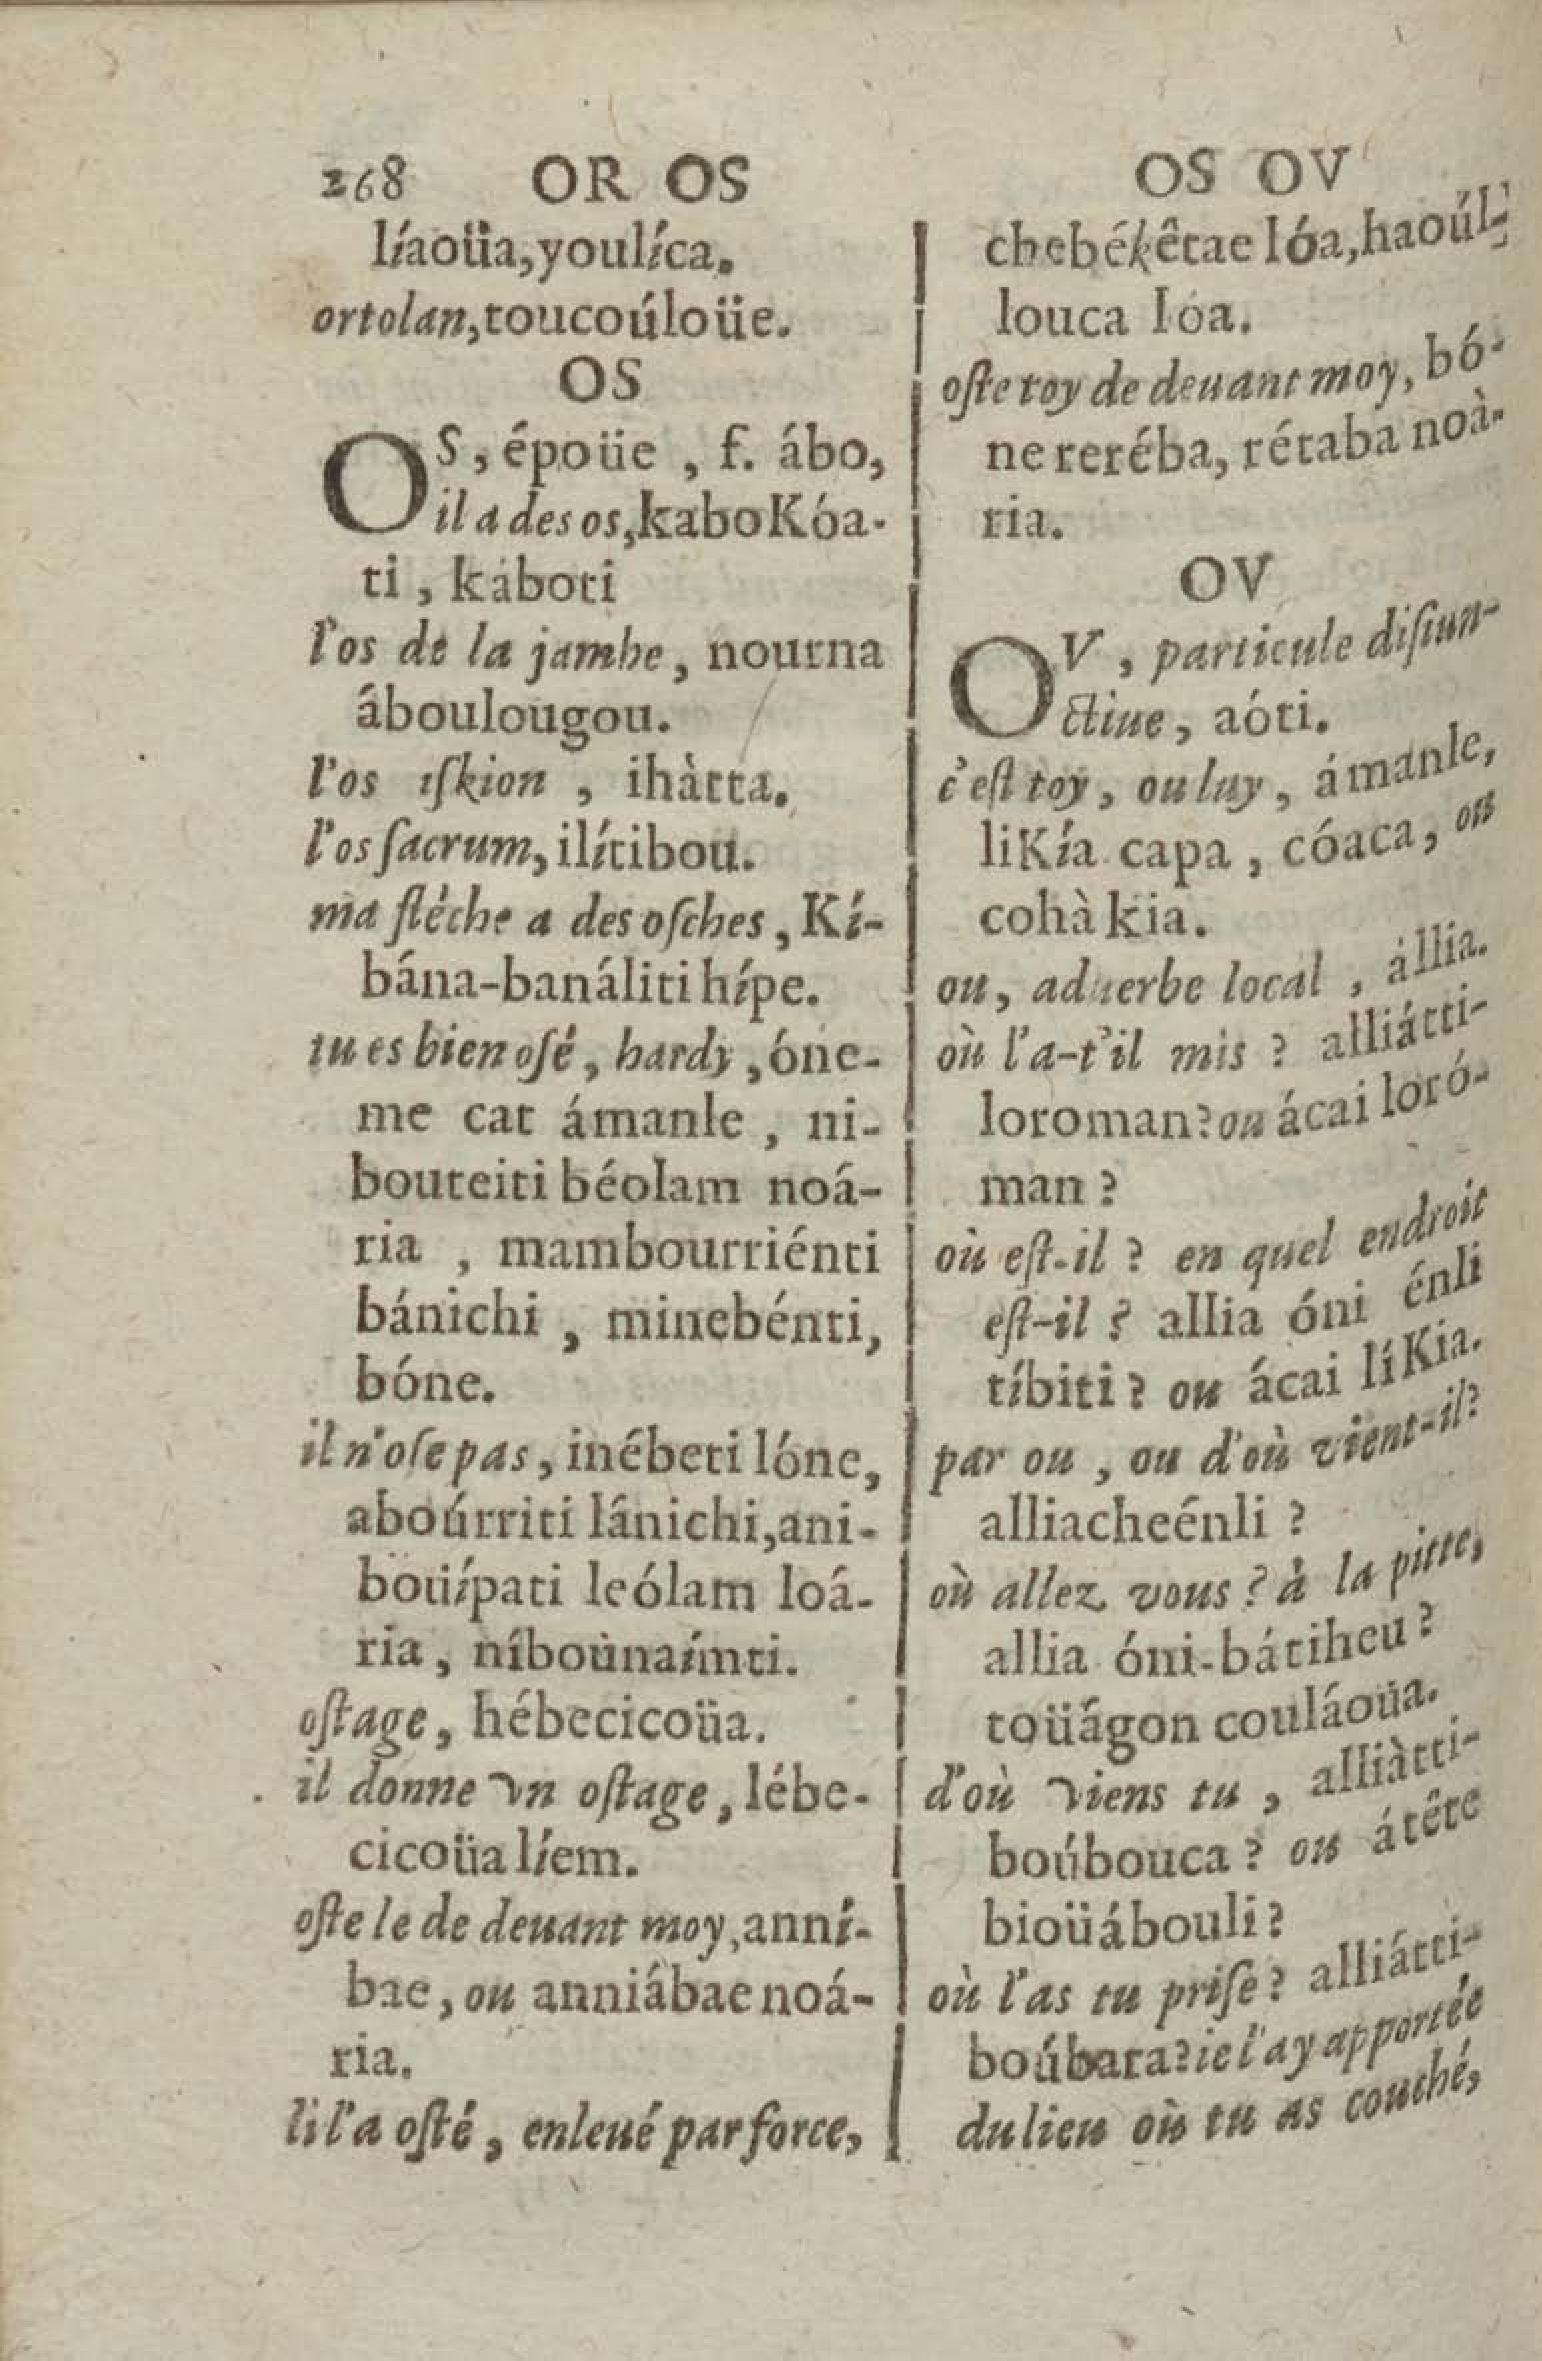 268 OR OS
líaoüa, youlíca.
ortolan, toucoúloüe.
OS
OS, époüe, f. ábo,
il a des os, kaboKóa-
ti, káboti
l'os de la jambe, nourna
áboulougou.
l'os ıſkion, ihàtta.
l'os ſacrum, ilítibou.
ma fléche a des oſches, Kí-
bána-banáliti hípe.
tu es bien oſé, hardy, óne-
me cat ámanle, ni-
bouteiti béolam noá-
ria, mambourriénti
bánichi, minebénti,
bóne.
il n'oſe pas, inébeti lóne,
aboúrriti lánichi, ani-
boüípati leólam loá-
ria, níboùnaímti.
oſtage, hébecicoüa.
il donne vn oſtage, lébe-
cicoüa líem.
oſte le de deuant moy, anní-
bae, ou anniábae noá-
ria.
il l'a oſté, enleué par force,
OS OV
chebékêtae lóa, haoúl-
louca lóa.
oſte toy de deuant moy, bó-
ne reréba, rétaba noà-
ria.
OV
OV, particule diſiun-
ctiue, aóti.
c'eſt toy, ou luy, ámanle,
liKía capa, cóaca, ou
cohàkia.
ou, aduerbe local, állia.
où l'a-t'il mis? alliátti-
loroman? ou ácai loró-
man?
où eſt-il? en quel endroit
eſt-il? allia óni énli
tíbiti? ou ácai líKia.
par ou, ou d'où vient-il?
alliacheénli?
où allez vous? à la pitte,
allia óni-bátiheu?
toüágon couláoüa.
d'où viens tu, alliàtti-
boúbouca? ou átête
bioüábouli?
où l'as tu priſe? alliátti-
boúbara? ie l'ay apportée
du lieu où tu as couché,